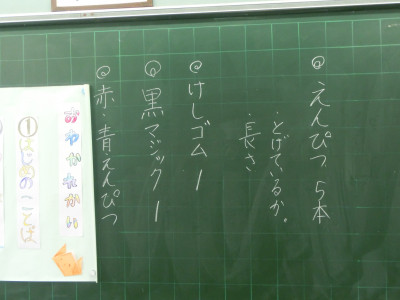 ◎えんぴつ 5本
・とげているか。
・長さ
◎けしゴム 1
◎黒マジック 1
◎赤・青えんぴつ
おわかれかい
①はじめのことば